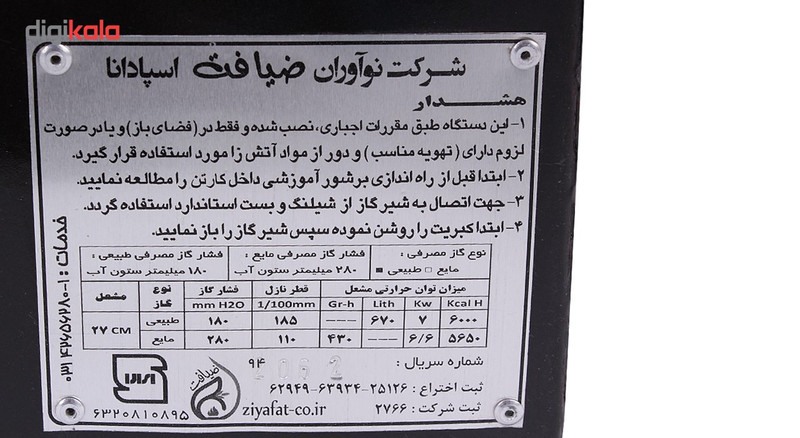 digikala
شرکت نوآوران ضیافت اسپادانا
هشدار
۱- این دستگاه طبق مقررات اجباری، نصب شده و فقط در (فضای باز) و یا در صورت
لزوم دارای (تهویه مناسب) و دور از مواد آتش زا مورد استفاده قرار گیرد.
۲- ابتدا قبل از راه اندازی برشور آموزشی داخل کارتن را مطالعه نمایید.
۳- جهت اتصال به شیر گاز از شیلنگ و بست استاندارد استفاده گردد.
۴- ابتدا کبریت را روشن نموده سپس شیر گاز را باز نمایید.
نوع گاز مصرفی : فشار گاز مصرفی مایع : فشار گاز مصرفی طبیعی :
مایع □ طبیعی ■ ۲۸۰ میلیمتر ستون آب ۱۸۰ میلیمتر ستون آب
میزان توان حرارتی مشعل قطر نازل فشار گاز نوع گاز مشعل
Kcal H Kw Lith Gr-h 1/100mm mm H2O
۶۰۰۰ ۷ ۶۷۰ --- ۱۸۵ ۱۸۰ طبیعی ۲۷ CM
۵۶۵۰ ۶/۶ --- ۴۳۰ ۱۱۰ ۲۸۰ مایع
شماره سریال : ۹۴
ثبت اختراع : ۲۵۱۲۶-۶۳۹۳۴-۶۲۹۴۹
ثبت شرکت : ۲۷۶۶
ziyafat-co.ir
ضیافت
۶۳۲۰۸۱۰۸۹۵
خدمات : ۱-۰۳۱۴۲۶۵۶۲۸۰